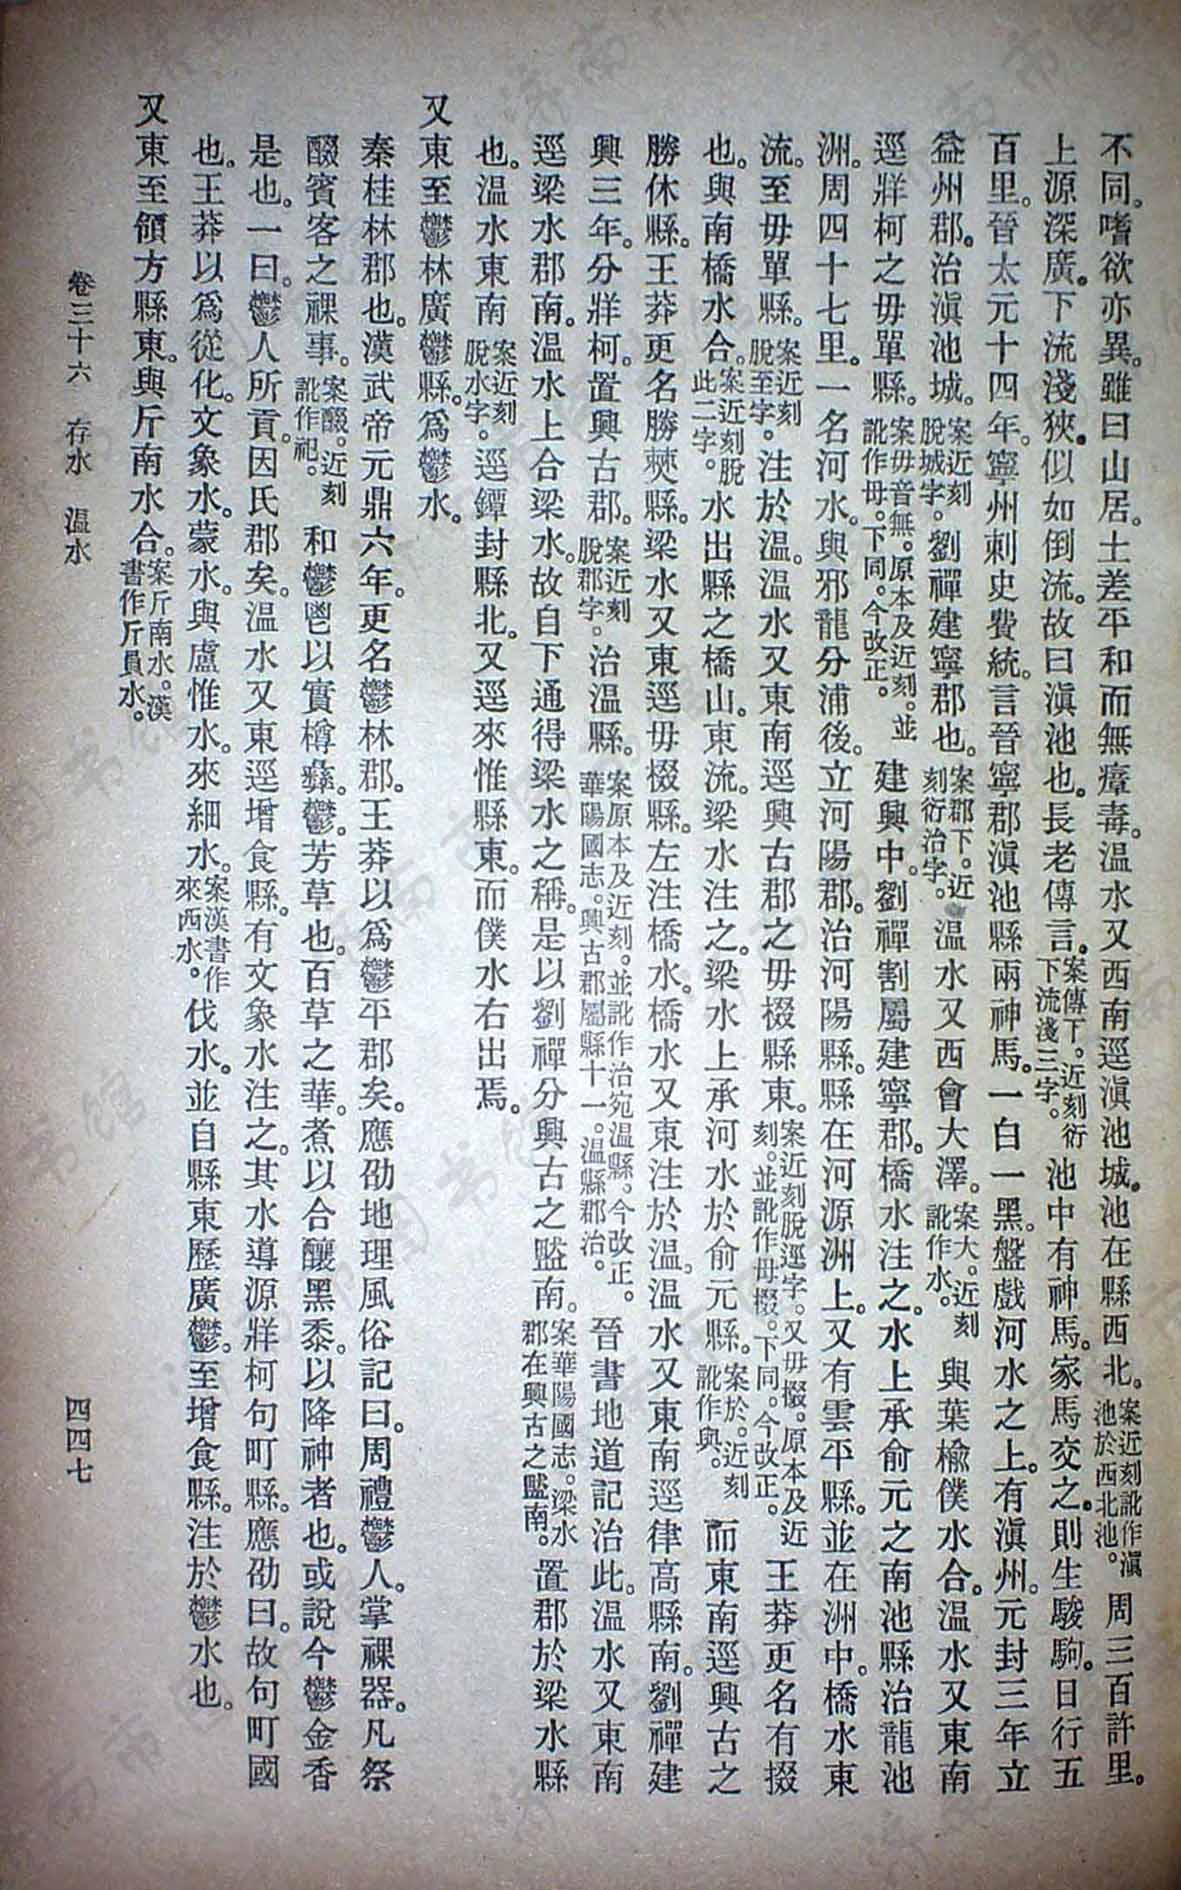 不同。嗜欲亦異。雖曰山居。土差平和而無瘴毒。溫水又西南逕滇池城。池在縣西北。案近刻訛作滇池於西北池。周三百許里。
上源深廣。下流淺狹。似如倒流。故曰滇池也。長老傳言。案傳下。近刻衍下流淺三字。池中有神馬。家馬交之。則生駿駒。日行五
百里。晉太元十四年。寧州刺史費統。言晉寧郡滇池縣兩神馬。一白一黑。盤戲河水之上。有滇州。元封三年立
益州郡。治滇池城。案近刻脫城字。劉禪建寧郡也。案郡下。近刻衍治字。溫水又西會大澤。案大。近刻訛作水。與葉楡僕水合。溫水又東南
逕牂柯之毋單縣。案毋音無。原本及近刻。並訛作母。下同。今改正。建興中。劉禪割屬建寧郡。橋水注之。水上承俞元之南池縣治龍池
洲。周四十七里。一名河水。與邪龍分浦後。立河陽郡。治河陽縣。縣在河源洲上。又有雲平縣。並在洲中。橋水東
流。至毋單縣。案近刻脫至字。注於溫。溫水又東南逕興古郡之毋棳縣東。案近刻脫逕字。又毋棳。原本及近刻。並訛作母掇。下同。今改正。王莽更名有掇
也。與南橋水合。案近刻脫此二字。水出縣之橋山。東流。梁水注之。梁水上承河水於俞元縣。案於。近刻訛作與。而東南逕興古之
勝休縣。王莽更名勝僰縣。梁水又東逕毋棳縣。左注橋水。橋水又東注於溫。溫水又東南逕律高縣南。劉禪建
興三年。分牂柯。置興古郡。案近刻脫郡字。治溫縣。案原本及近刻。並訛作治宛溫縣。今改正。華陽國志。興古郡屬縣十一。溫縣郡治。晉書地道記治此。溫水又東南
逕梁水郡南。溫水上合梁水。故自下通得梁水之稱。是以劉禪分興古之盬南。案華陽國志。梁水郡在興古之盬南。置郡於梁水縣
也。溫水東南案近刻脫水字。逕鐔封縣北。又逕來惟縣東。而僕水右出焉。
又東至鬱林廣鬱縣。為鬱水。
秦桂林郡也。漢武帝元鼎六年。更名鬱林郡。王莽以為鬱平郡矣。應劭地理風俗記曰。周禮鬱人。掌祼器。凡祭
醊賓客之祼事。案醊。近刻訛作祀。和鬱鬯以實樽彝。鬱。芳草也。百草之華。煮以合釀黑黍。以降神者也。或說今鬱金香
是也。一曰。鬱人所貢。因氏郡矣。溫水又東逕增食縣。有文象水注之。其水導源牂柯句町縣。應劭曰。故句町國
也。王莽以為從化。文象水。蒙水。與盧惟水。來細水。案漢書作來西水。伐水。並自縣東歷廣鬱。至增食縣。注於鬱水也。
又東至領方縣東。與斤南水合。案斤南水。漢書作斤員水。
卷三十六　存水　溫水
四四七